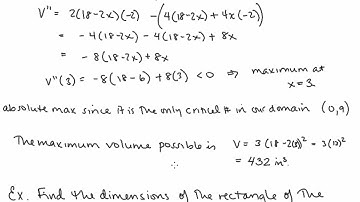 V'' = 2(18-2x)(-2) - (4(18-2x) + 4x(-2))
= -4(18-2x) - 4(18-2x) + 8x
= -8(18-2x) + 8x
V''(3) = -8(18-6) + 8(3) < 0 ⇒ maximum at x=3
absolute max since it is the only critical # in our domain (0,9)
The maximum volume possible is V = 3(18-2(3))² = 3(12)²
= 432 in³.
Ex. Find the dimensions of the rectangle of the